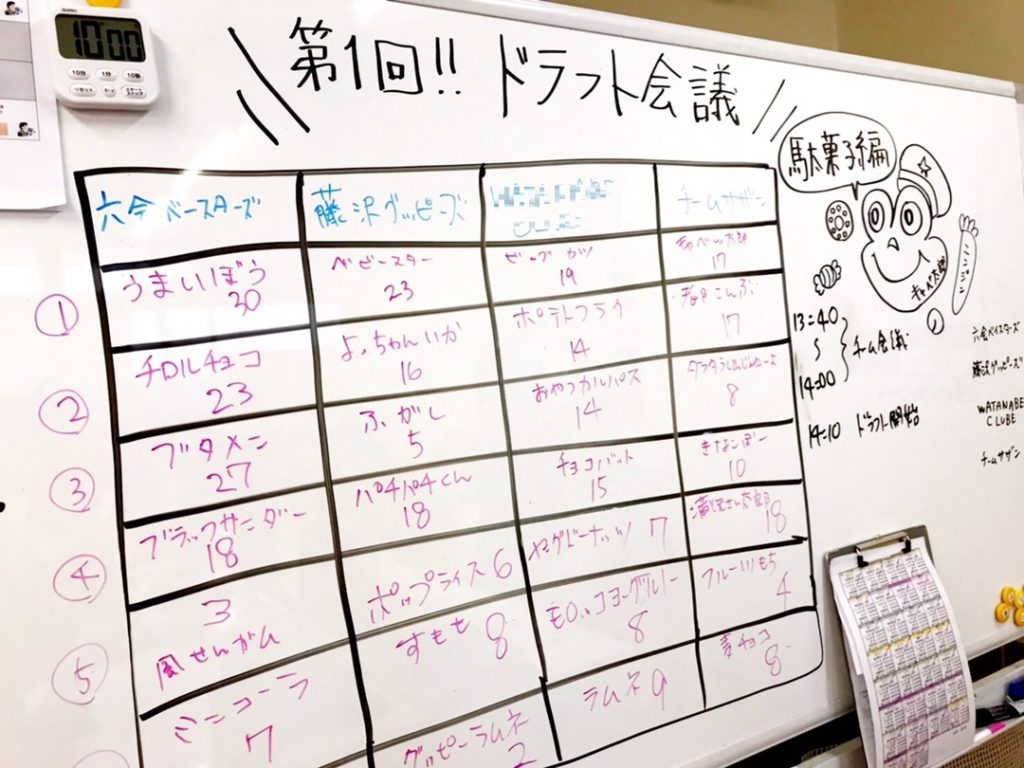 10:00
10分
1分
10秒
第1回!! ドラフト会議
駄菓子編
六会ベースターズ
藤沢グッピーズ
チームサザン
①
うまいぼう
30
ベビースター
23
ビッグカツ
19
キャベツ太郎
17
②
チロルチョコ
23
よっちゃんいか
16
ポテトフライ
14
都こんぶ
17
③
ブタメン
27
ふがし
5
おやつカルパス
14
8
④
ブラックサンダー
18
パチパチくん
18
チョコバット
15
きなこぼー
10
⑤
3
風せんガム
ポップライス 6
ヤングドーナッツ 7
蒲焼さん太郎
18
ミニコーラ
7
すもも 8
モロッコヨーグルト
8
フルーツもち
4
グッピーラムネ
2
ラムネ 9
麦チョコ
8
キャベ太郎
13:40
チーム会議
14:00
14:10 ドラフト開始
六会ベイスターズ
藤沢グッピーズ
WATANABE
CLUBE
チームサザン